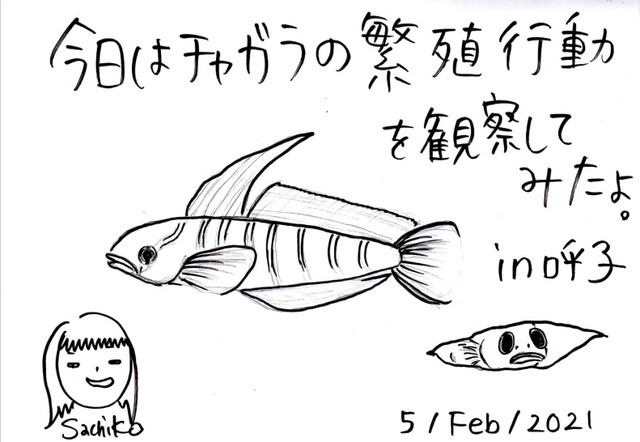 今日はチャガラの繁殖行動
を観察して
みたよ。
in 呼子
Sachiko
5/Feb/2021